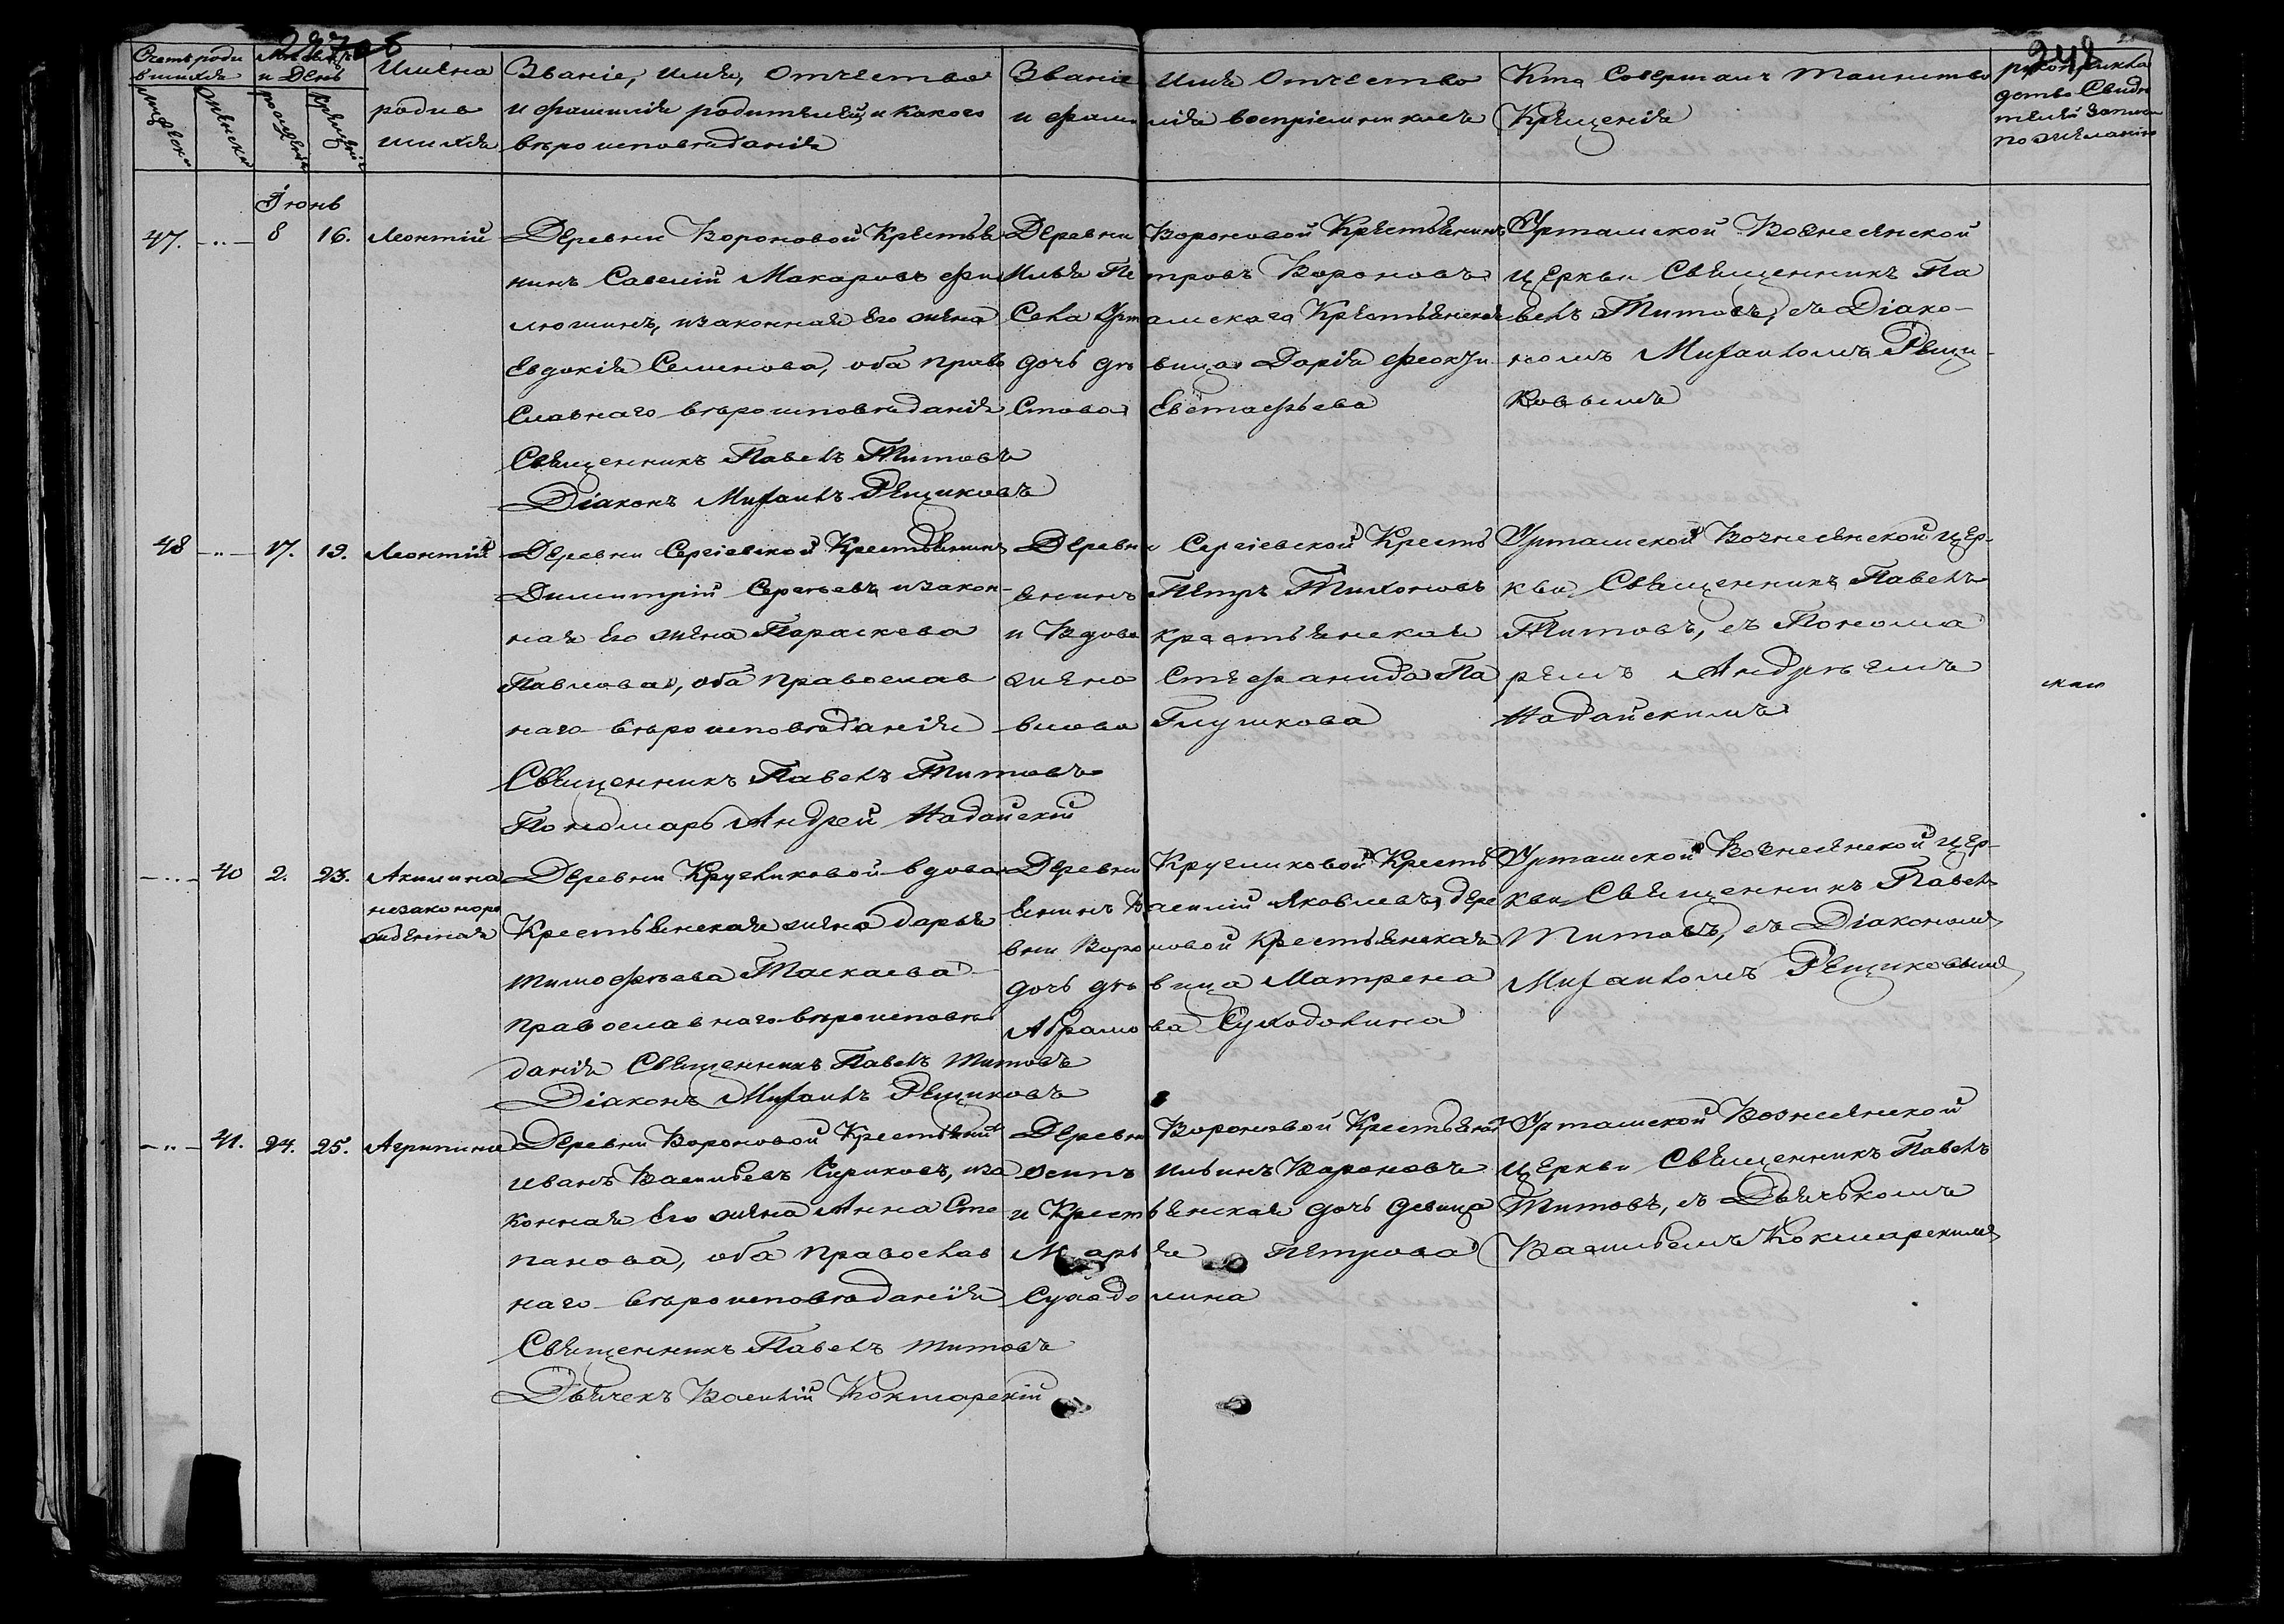 248
Счетъ роди
вшихся
Мужеска
Женска
Месяцъ
и День
рожденія
крещенія
Имена
родив
шихся
Званіе, имя, отчество
и фамилія родителей, и какого
вѣроисповѣданія
Званіе имя отчество
и фамилія воспріемниковъ
Кто совершалъ таинство
Крещенія
рукоприкла
дство свидѣ
телей записи
по желанію
Іюнь
47. -..- 8 16. Леонтій
Деревни Вороновой Крестья
нинъ Савелій Макаровъ Фи
люшинъ, изаконная его жена
Евдокія Семенова, оба право
славнаго вѣроисповѣданія
Священникъ Павелъ Титовъ
Діаконъ Михаилъ Рещиковъ
Деревни Вороновой Крестьянинъ
Илья Петровъ Вороновъ
Села Урташскаго Крестьянская
дочь дѣвица Дарія Феокти
стова Евстафьева
Урташской Вознесенской
церкви Священникъ Па
велъ Титовъ, съ Діако-
номъ Михаиломъ Рещи-
ковымъ
48 -..- 17. 19. Леонтій
Деревни Сергіевской Крестьянинъ
Димитрій Сергѣевъ, изакон-
ная его жена Параскева
Павлова, оба православ
наго вѣроисповѣданія
Священникъ Павелъ Титовъ
Пономарь Андрей Надайскій
Деревни Сергіевской Кресть
янинъ Петръ Тихоновъ
и Вдова крестьянская
жена Стефанида Па
влова Глушкова
Урташской Вознесенской цер-
кви Священникъ Павелъ
Титовъ, съ Понома
ремъ Андреемъ
Надайскимъ
-..- 40 2. 23. Акилина
незаконоро
жденная
Деревни Кругликовой вдова
Крестьянская жена дарья
тимофѣева Таскаева
православнаго вѣроисповѣ
данія Священникъ Павелъ Титовъ
Діаконъ Михаилъ Рещиковъ
Деревни Кругликовой Кресть
янинъ Василій Яковлевъ, дере
вни Вороновой Крестьянская
дочь дѣвица Матрена
Абрамова Суходолина
Урташской Вознесенской цер-
кви Священникъ Павелъ
Титовъ, съ Діакономъ
Михаиломъ Рещиковымъ
-..- 41. 24. 25. Агрипина
Деревни Вороновой Крестьянинъ
Иванъ Васильевъ Суриковъ, иза
конная его жена Анна Сте
панова, оба православ
наго вѣроисповѣданія
Священникъ Павелъ Титовъ
Дьячекъ Василій Кокшарскій
Деревни Вороновой Крестьянинъ
Осипъ Ильинъ Вороновъ
и Крестьянская дочь девица
Марья Петрова
Суходолина
Урташской Вознесенской
церкви Священникъ Павелъ
Титовъ, съ Дьячькомъ
Васильемъ Кокшарскимъ